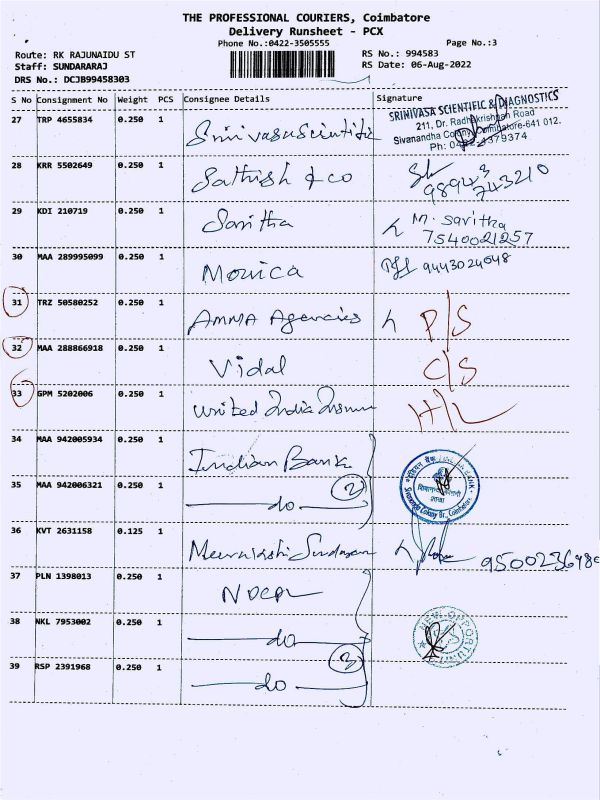 THE PROFESSIONAL COURIERS, Coimbatore
Delivery Runsheet - PCX
Phone No.:0422-3505555
Page No.:3
Route: RK RAJUNAIDU ST
RS No.: 994583
Staff: SUNDARARAJ
RS Date: 06-Aug-2022
DRS No.: DCJB99458303
S No Consignment No Weight PCS Consignee Details Signature
27 TRP 4655834 0.250 1 Srinivasa Scientific
SRINIVASA SCIENTIFIC & DIAGNOSTICS
211, Dr. Radhakrishnan Road
Sivanandha Colony, Coimbatore-641 012.
28 KRR 5502649 0.250 1 Sathish & co
98943
743210
29 KDI 210719 0.250 1 Savitha M. Savitha
7540021257
30 MAA 289995099 0.250 1 Monica 9443024048
31 TRZ 50580252 0.250 1 AMMA Agencies P/S
32 MAA 288866918 0.250 1 Vidal C/S
33 GPM 5202006 0.250 1 United India H/L
34 MAA 942005934 0.250 1 Indian Bank
35 MAA 942006321 0.250 1 do 2
36 KVT 2631158 0.125 1 Meenakshi Sundaram
37 PLN 1398013 0.250 1 NOCPL
38 NKL 7953002 0.250 1 do
39 RSP 2391968 0.250 1 do 3